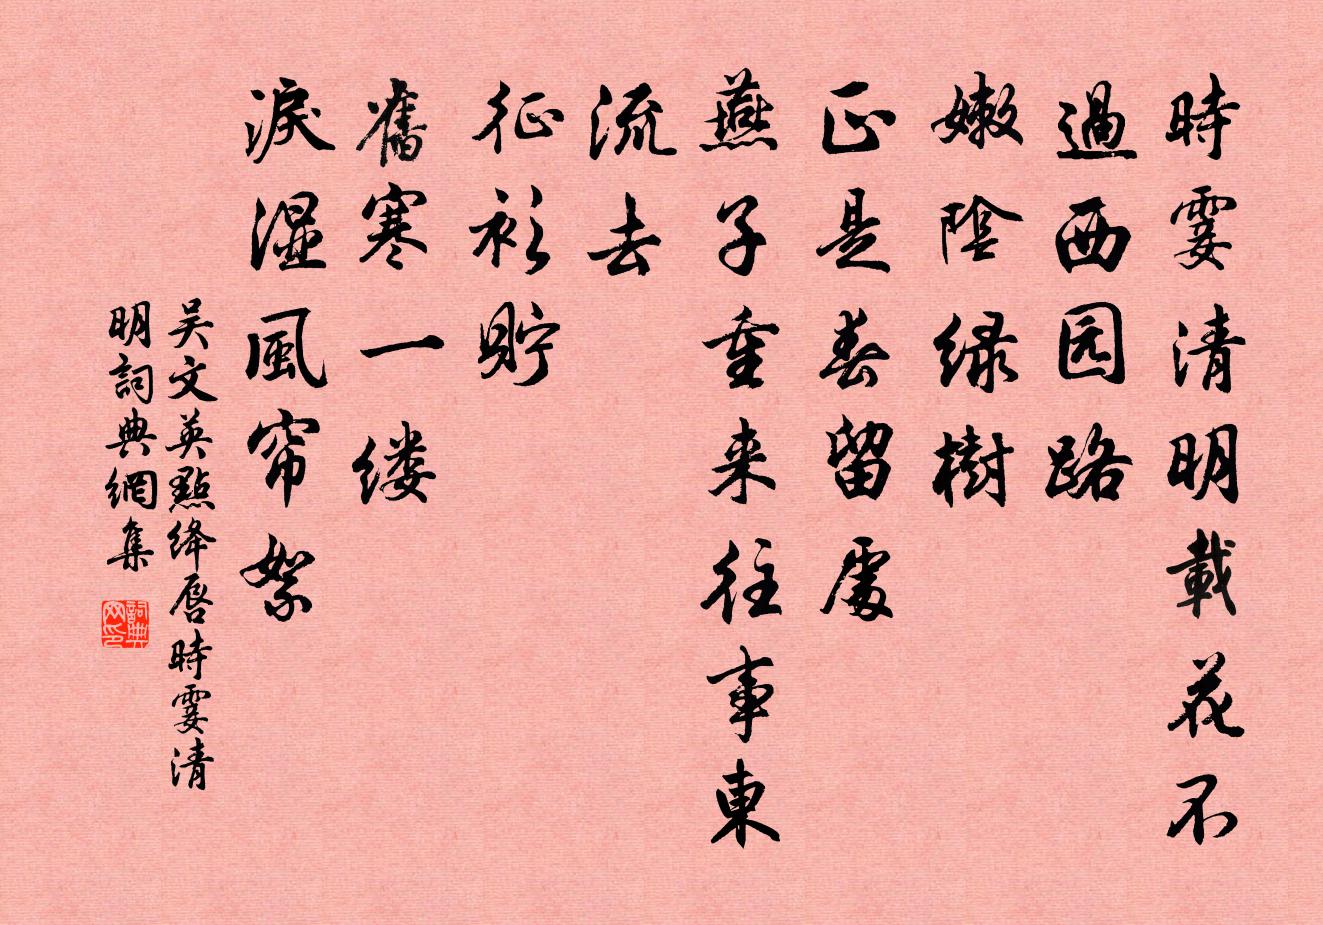 時霎清明載花不
過西园路
嫩陰绿樹
正是春留處
燕子重来往事東
流去
征衫貯
舊寒一缕
淚湿風帘絮
吴文英點绛唇時霎清
明詞典網集
詞典网印